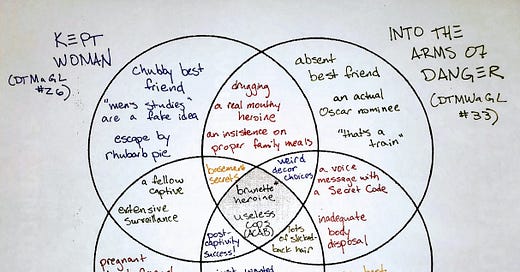 KEPT
WOMAN
(DTMAGL
#26)
INTO THE
ARMS OF
DANGER
(DTMWAGL
#33)
chubby best
friend
"men's studies"
are a fake idea
escape by
rhubarb pie
drugging
a real mouthy
heroine
an insistence on
proper family meals
absent
best friend
an actual
Oscar nominee
"that's a
train"
a fellow
captive
extensive
surveillance
basement
secrets
weird
decor
choices
brunette*
heroine
useless
cops
(ACAB)
a voice
message with
a Secret Code
inadequate
body
disposal
post-
captivity
success!
lots
of slicked-
back hair
pregnant